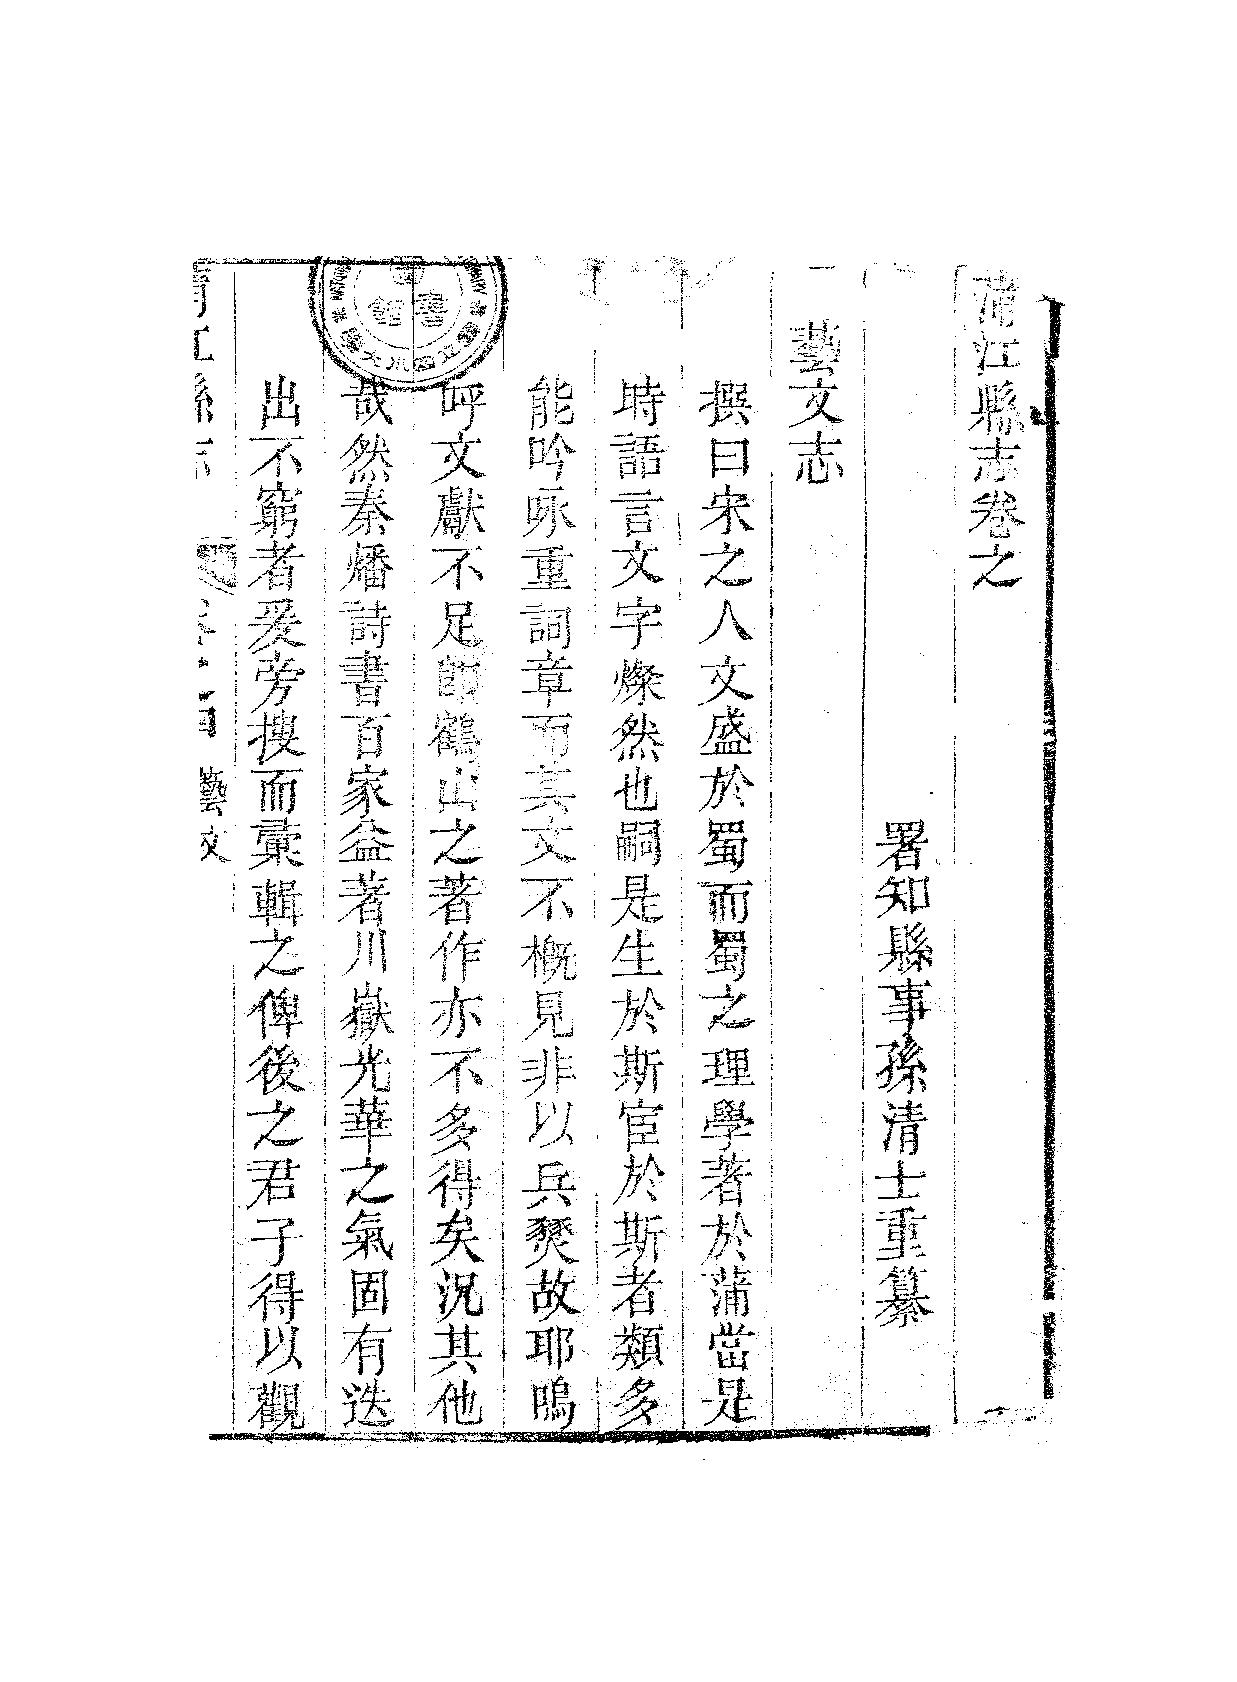 蒲江縣志卷之
署知縣事孫清士重纂
藝文志
撰曰宋之人文盛於蜀而蜀之理學著於蒲當是
時語言文字燦然也嗣是生於斯宦於斯者類多
能吟咏重詞章而其文不概見非以兵燹故耶嗚
呼文獻不足卽鶴山之著作亦不多得矣況其他
哉然秦燔詩書百家益著川嶽光華之氣固有迭
出不窮者爰旁搜而彙輯之俾後之君子得以觀
江縣志 藝文